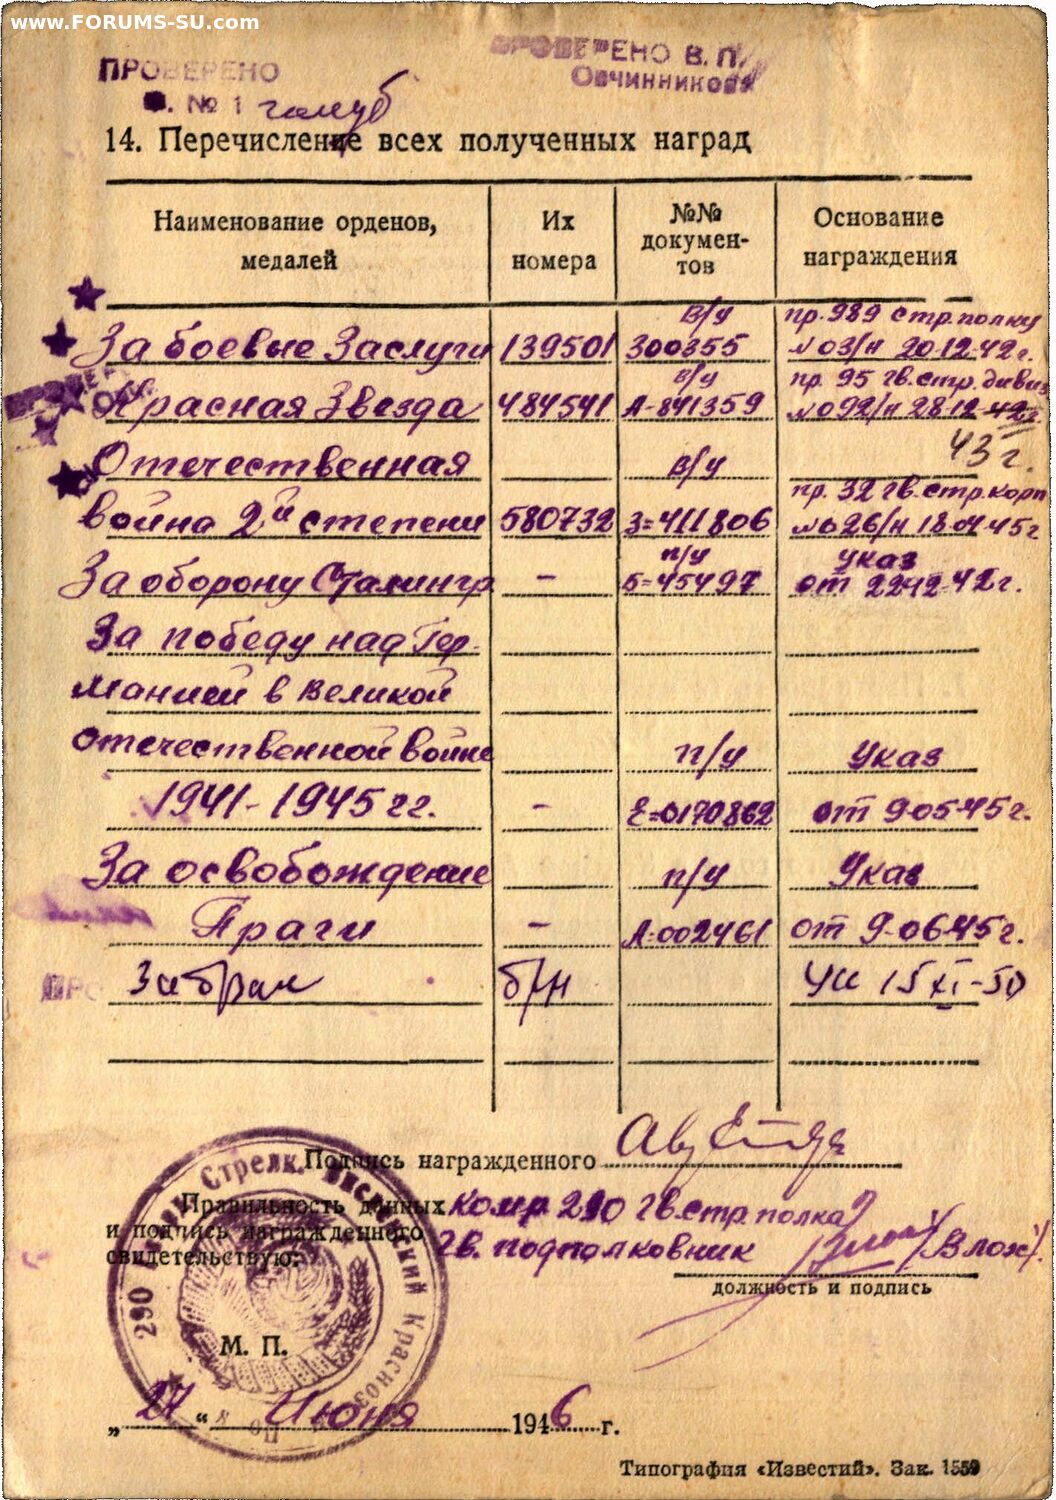 www.FORUMS-SU.com
ПРОВЕРЕНО
ПРОВЕРЕНО В.П.
Овчинникова
№ 1 голуб
14. Перечисление всех полученных наград
Наименование орденов, медалей
Их номера
№№ докумен-
тов
Основание награждения
в/у пр. 989 стр. полку
За боевые Заслуги 139501 300355 №03/н 20-12-42 г.
в/у пр. 95 гв. стр. дивиз
Красная Звезда 484541 А-841359 №092/н 28-12-42 г.
43 г.
Отечественная в/у
пр. 32 гв. стр. корп
война 2й степени 580732 З=411806 №026/н 18-04-45 г
п/у указ
За оборону Сталингр – Б=45497 от 22-12-42 г.
За победу над Гер-
манией в Великой
отечественной войне п/у Указ
1941-1945 гг. – Е=0170862 от 9-05-45 г.
За освобождение п/у Указ
Праги – А-002461 от 9-06-45 г.
б/н 15 XI-50
Подпись награжденного
Правильность данных комр 290 гв. стр полка
и подпись награжденного
свидетельствую: гв. подполковник /Влох/.
должность и подпись
290 Стрелк. Висленский Красноз
М. П.
„27“ Июня 1946 г.
Типография «Известий». Зак. 1559